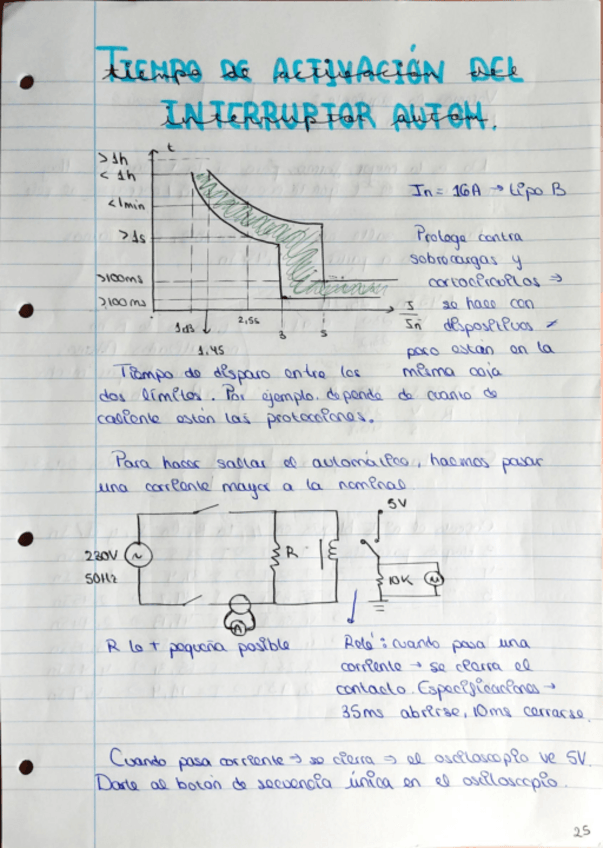 TIEMPO DE ACTIVACIÓN DEL
INTERRUPTOR AUTOM.
t
>1h
<1h
<1min
>1s
>100ms
>100ms
1.13
1.45
2,55
3
5
I/In
In = 16A → tipo B
Protege contra
sobrecargas y
cortocircuitos ⇒
se hace con
dispositivos ≠
pero están en la
misma caja
Tiempo de disparo entre los
dos límites. Por ejemplo. depende de cuanto de
caliente están las protecciones.
Para hacer saltar el automático, hacemos pasar
una corriente mayor a la nominal
230V
50Hz
~
R
A
5V
10K
R lo + pequeña posible
Relé: cuando pasa una
corriente → se cierra el
contacto. Especificaciones →
35ms abrirse, 10ms cerrarse.
Cuando pasa corriente → se cierra → el osciloscopio ve 5V.
Darle al botón de secuencia única en el osciloscopio.
25